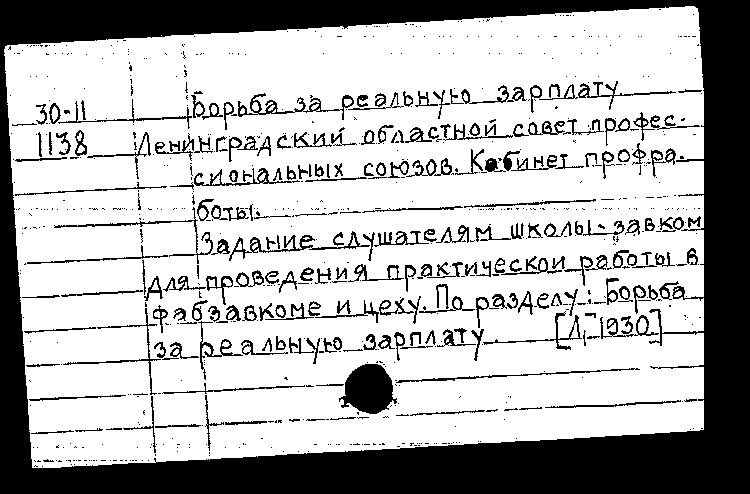 30-11 Борьба за реальную зарплату.
1138 Ленинградский областной совет профес-
сиональных союзов. Кабинет профра-
боты.
Задание слушателям школы-завком
для проведения практической работы в
фабзавкоме и цеху. По разделу: Борьба
за реальную зарплату. [Л, 1930]